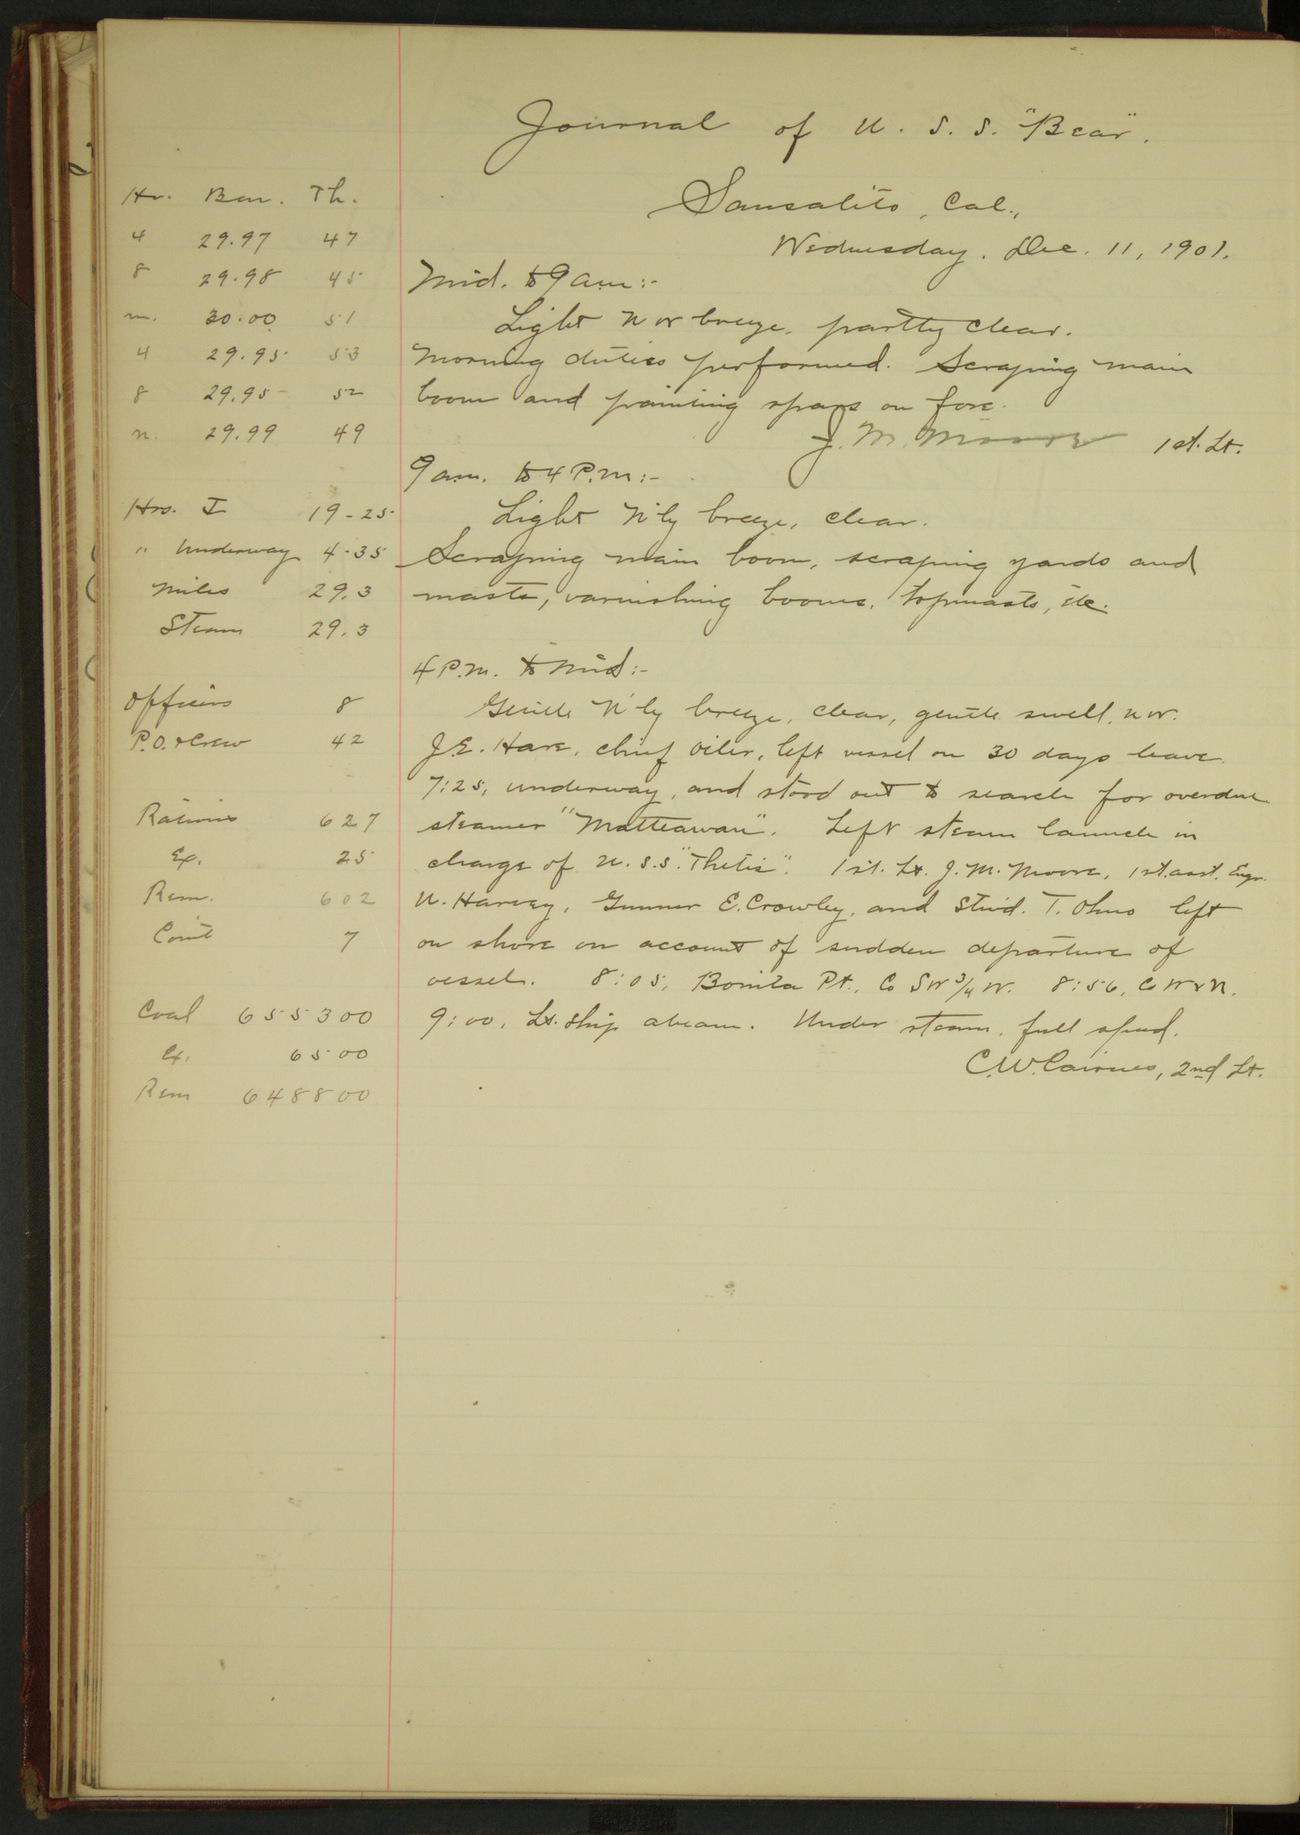 Journal of U. S. S. "Bear".
Sausalito, Cal.,
Wednesday. Dec. 11, 1901.
Hr. Bar. Th.
4 29.97 47
8 29.98 45
m. 30.00 51
4 29.95 53
8 29.95 52
n. 29.99 49
Hrs. I 19-25
" Underway 4-35
Miles 29.3
Steam 29.3
Officers 8
P.O. & Crew 42
Rations 627
Ex. 25
Rem. 602
Com't 7
Coal 655300
Ex. 6500
Rem 648800
Mid. to 9 a.m:-
Light N w breeze, partly clear.
Morning duties performed. Scraping main
boom and painting spars on fore.
J. M. Moore 1st. Lt.
9 a.m. to 4 P.m:-
Light N'ly breeze, clear.
Scraping main boom, scraping yards and
masts, varnishing booms, topmasts, etc.
4 P.m. to Mid:-
Gentle N'ly breeze, clear, gentle swell, n w.
J.E. Hare, chief oiler, left vessel on 30 days leave.
7:25, underway, and stood out to search for overdue
steamer "Matteawan". Left steam launch in
charge of U.S.S. "Thetis". 1st. Lt. J. M. Moore, 1st. asst. Engr.
N. Harvey, Gunner E. Crowley, and Stw'd. T. Ohno left
on shore on account of sudden departure of
vessel. 8:05, Bonita Pt., C SW 3/4 W. 8:56, C W x N.
9:00, Lt. Ship abeam. Under steam, full speed.
C.W. Cairnes, 2nd Lt.